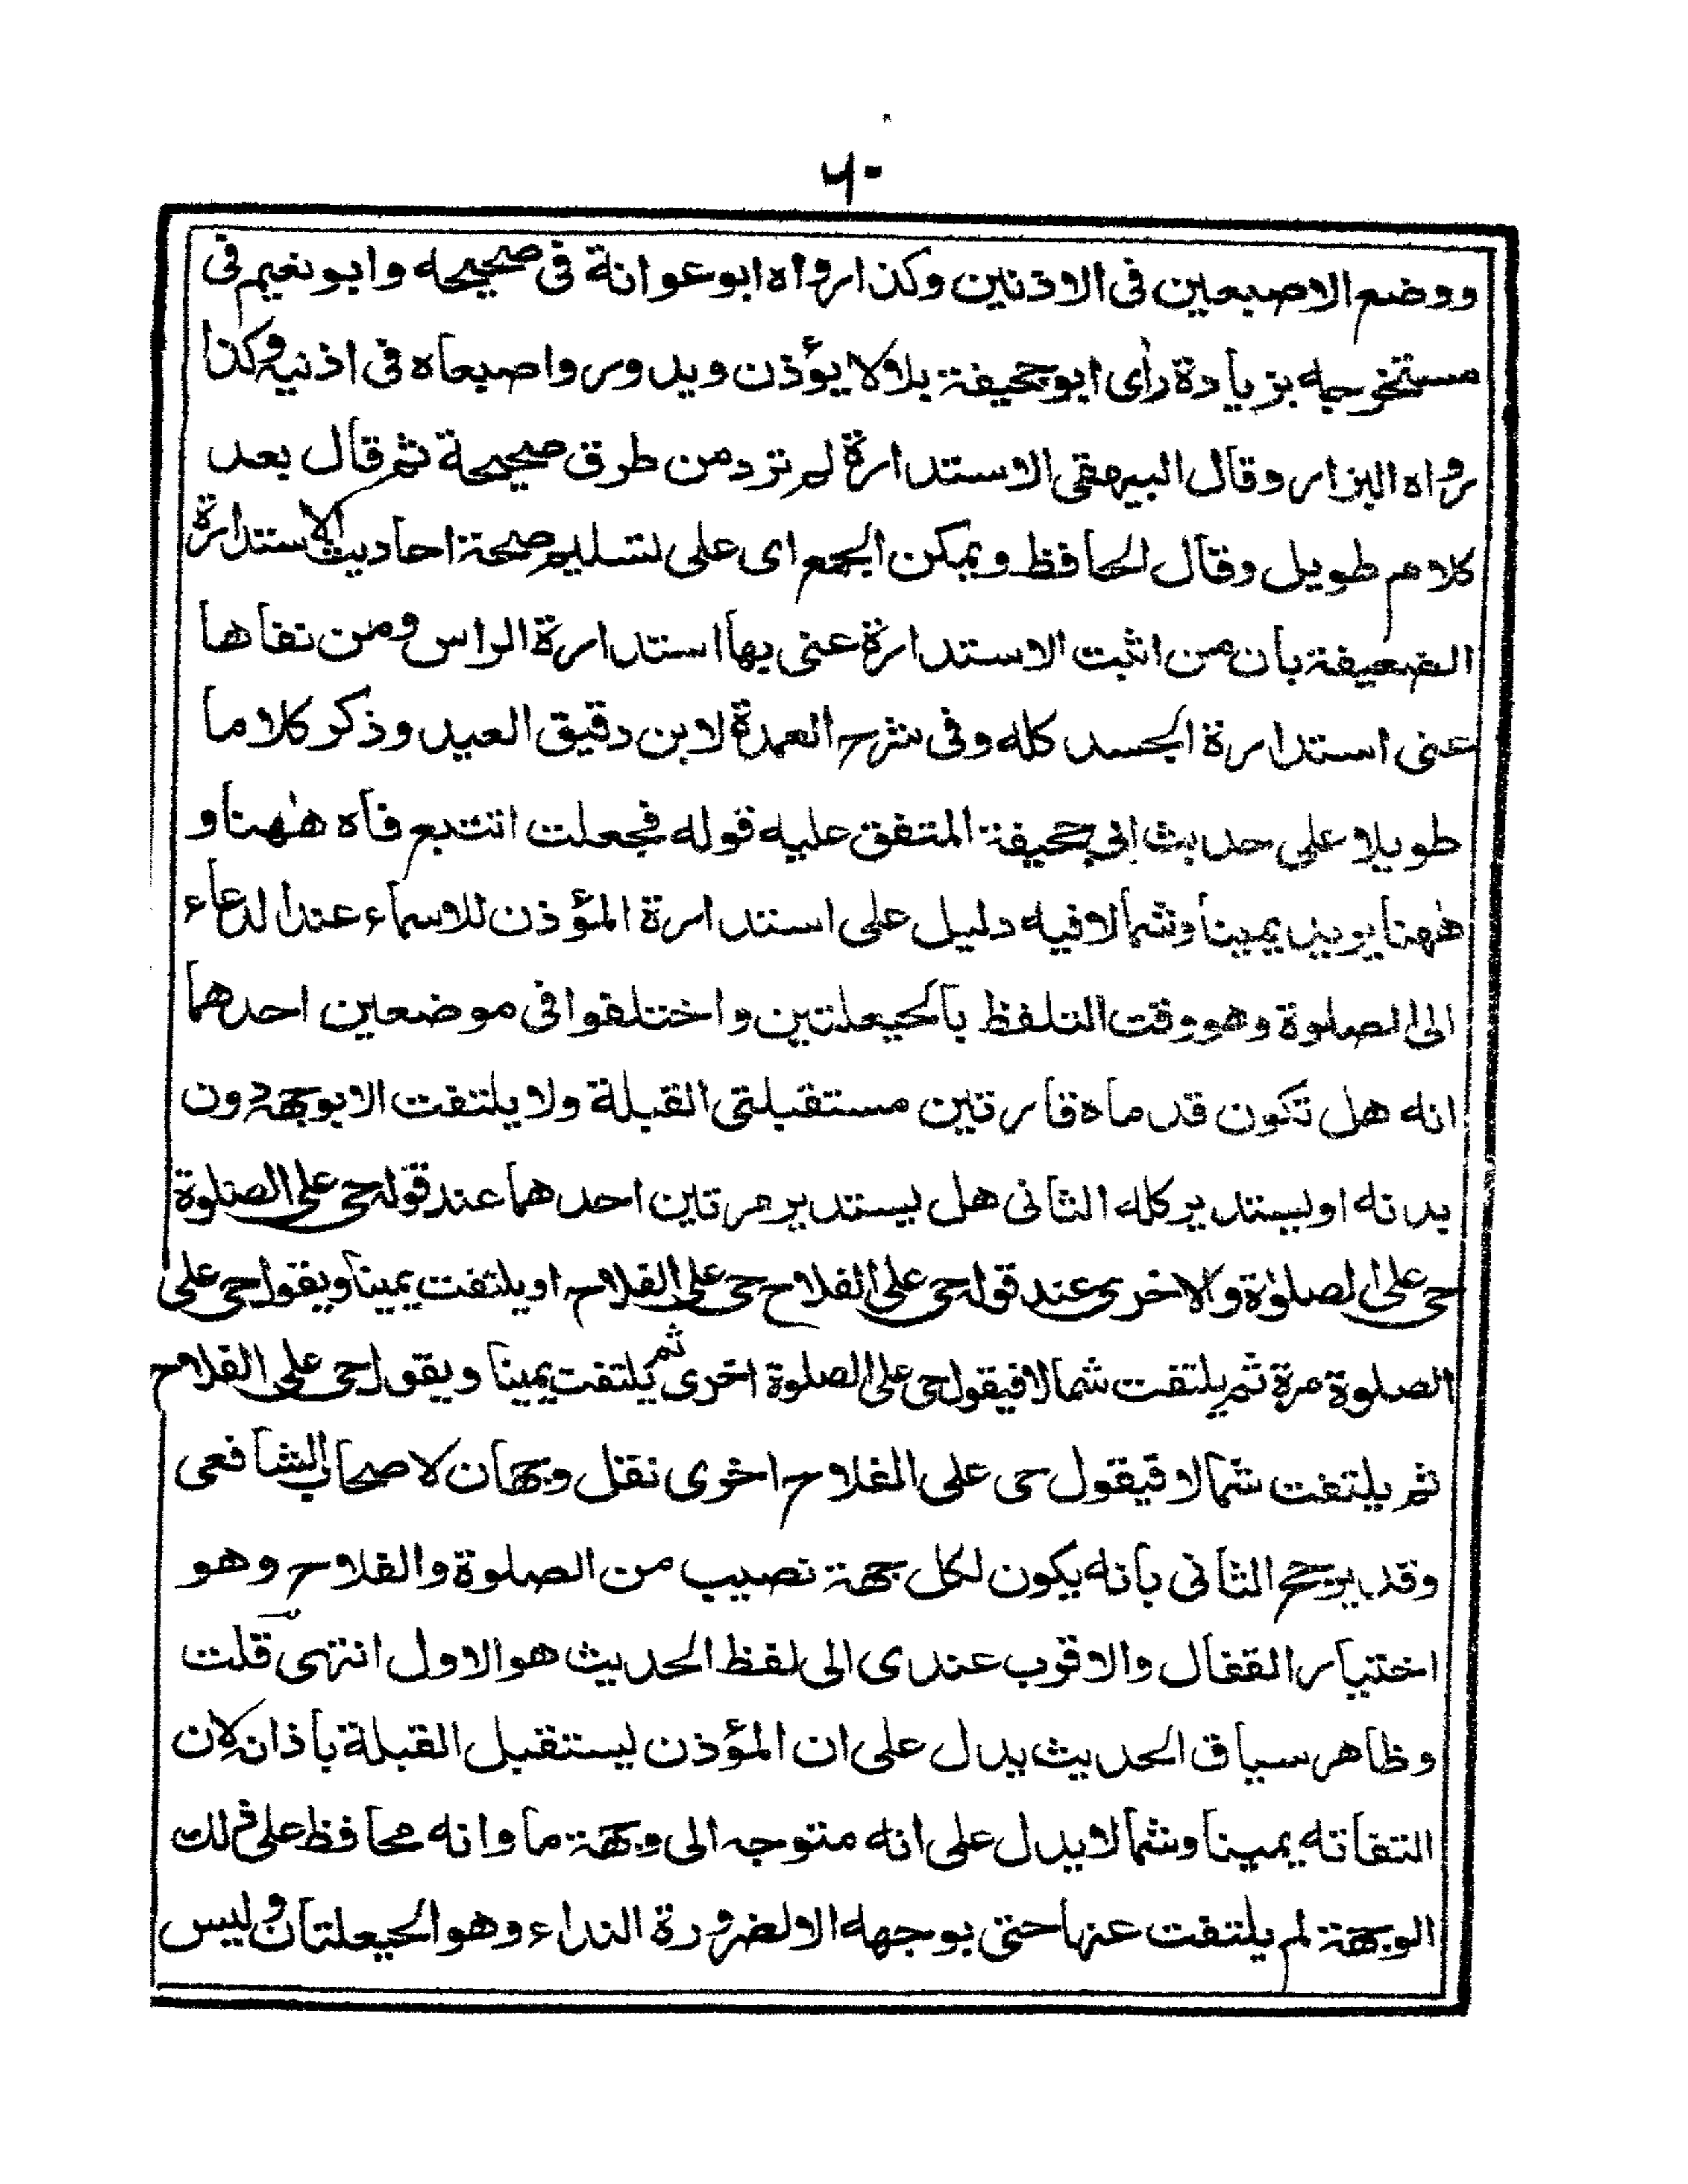 ٦٠
ووضع الاصبعين فى الاذنين وكذا رواه ابو عوانة فى صحيحه وابو نعيم فى
مستخرجه بزيادة رأى ابو جحيفة بلالا يؤذن ويدور واصبعاه فى اذنيه وكذا
رواه البزار وقال البيهقى الاستدارة لم ترد من طرق صحيحة ثم قال بعد
كلام طويل وقال الحافظ ويمكن الجمع اى على تسليم صحة احاديث الاستدارة
الضعيفة بان من اثبت الاستدارة عنى بها استدارة الراس ومن نفاها
عنى استدارة الجسد كله وفى شرح العمدة لابن دقيق العيد وذكر كلاما
طويلا على حديث ابى جحيفة المتفق عليه قوله فجعلت اتتبع فاه هٰهنا و
هٰهنا يريد يمينا وشمالا فيه دليل على استدارة المؤذن للاسماء عند الدعاء
الى الصلوة وهو وقت التلفظ بالحيعلتين واختلفوا فى موضعين احدهما
انه هل تكون قدماه قارتين مستقبلتى القبلة ولا يلتفت الا بوجهه دون
بدنه او يستدير كله الثانى هل يستدير مرتين احدهما عند قوله حى على الصلوة
حى على الصلوٰة والاخرى عند قوله حى على الفلاح حى على الفلاح او يلتفت يمينا ويقول حى على
الصلوة مرة ثم يلتفت شمالا فيقول حى على الصلوة اخرى ثم يلتفت يمينا ويقول حى على الفلاح
ثم يلتفت شمالا فيقول حى على الفلاح اخرى نقل وجهان لاصحاب الشافعى
وقد يرجح الثانى بانه يكون لكل جهة نصيب من الصلوة والفلاح وهو
اختيار القفال والاقرب عندى الى لفظ الحديث هو الاول انتهى قلت
وظاهر سياق الحديث يدل على ان المؤذن يستقبل القبلة باذانه لان
التفاته يمينا وشمالا يدل على انه متوجه الى وجهة ما وانه محافظ على ذلك
الوجهة لم يلتفت عنها حتى بوجهه الا لضرورة النداء وهو الحيعلتان وليس